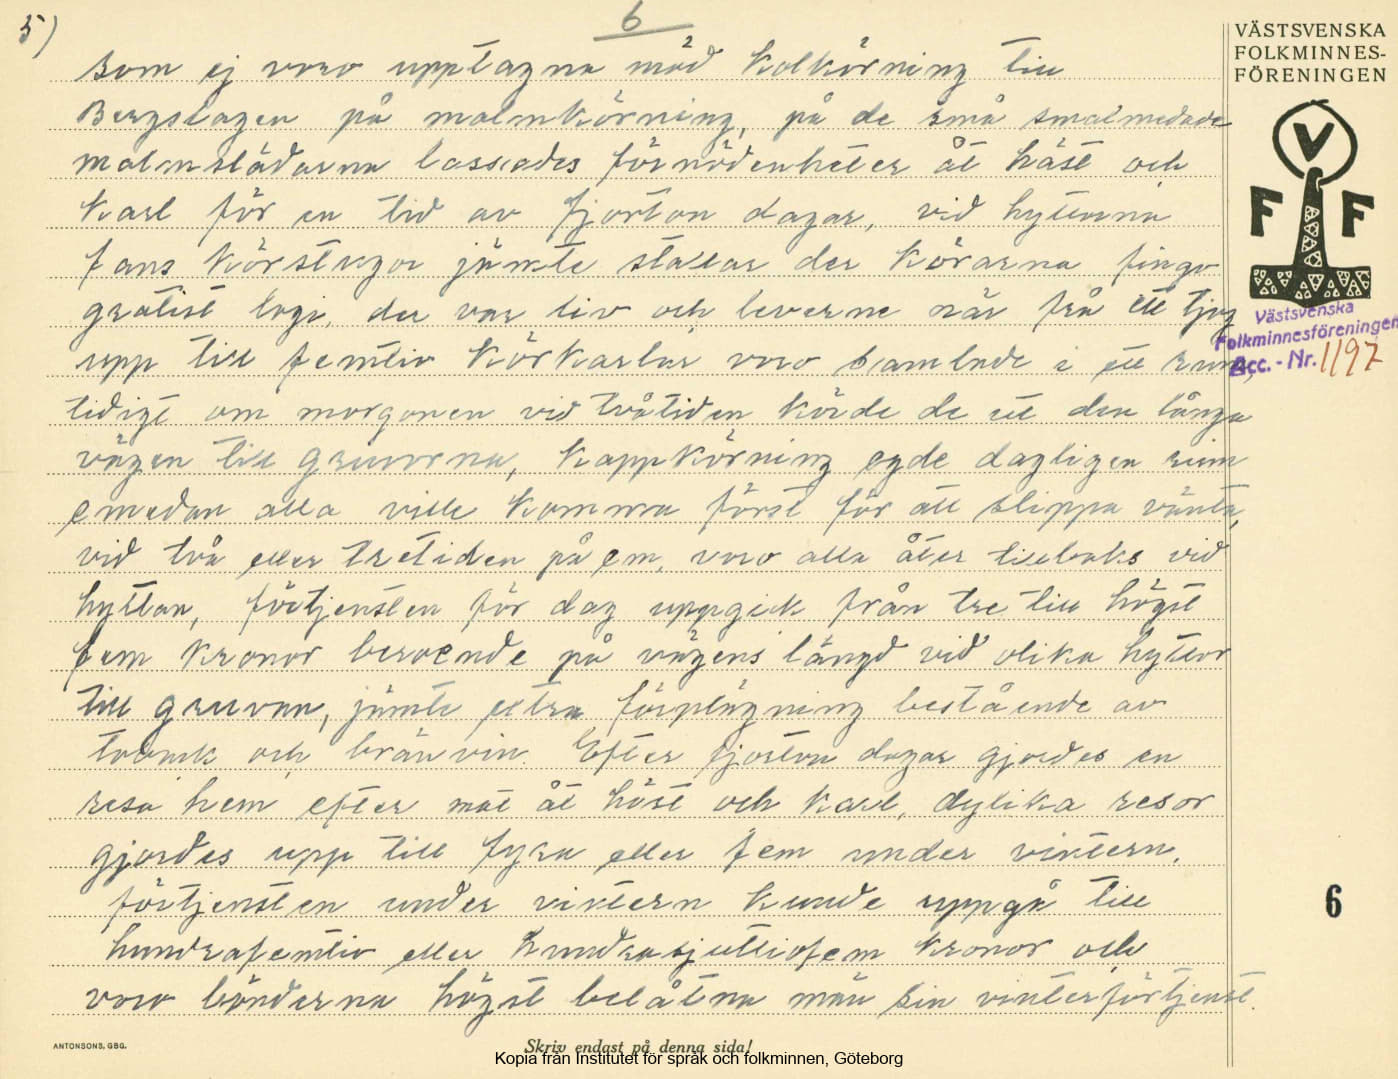 5)
6
VÄSTSVENSKA
FOLKMINNES-
FÖRENINGEN
som ej voro upptagna mäd kolkörning till
Bergslagen på malmkörning, på de små smalmedade
malmslädarna lassades förnödenheter åt häst och
karl för en tid av fjorton dagar, vid hyttorna
fans körstugor jämte stallar der körarna fingo
gratist logi, der var liv och leverne när frå ett tjog
upp till femtio körkarlar voro samlade i ett rum,
tidigt om morgonen vid tvåtiden körde de ut den långa
vägen till gruvorna, kappkörning egde dagligen rum
emedan alla ville komma först för att slippa vänta,
vid två eller tretiden på em, voro alla åter tillbaks vid
hyttan, förtjensten för dag uppgick från tre till högst
fem kronor beroende på vägens längd vid olika hyttor
till gruvan, jämte extra förplägning bestående av
tobak och bränvin. Efter fjorton dagar gjordes en
resa hem efter mat åt häst och karl, dylika resor
gjordes upp till fyra eller fem under vintern.
förtjensten under vintern kunde uppgå till
hundrafemtio eller hundrasjuttiofem kronor och
voro bönderna högst belåtna män sin vinterförtjenst.
V
F F
Västsvenska
Folkminnesföreningen
Acc. - Nr. 1197
6
ANTONSONS, GBG.
Skriv endast på denna sida!
Kopia från Institutet för språk och folkminnen, Göteborg